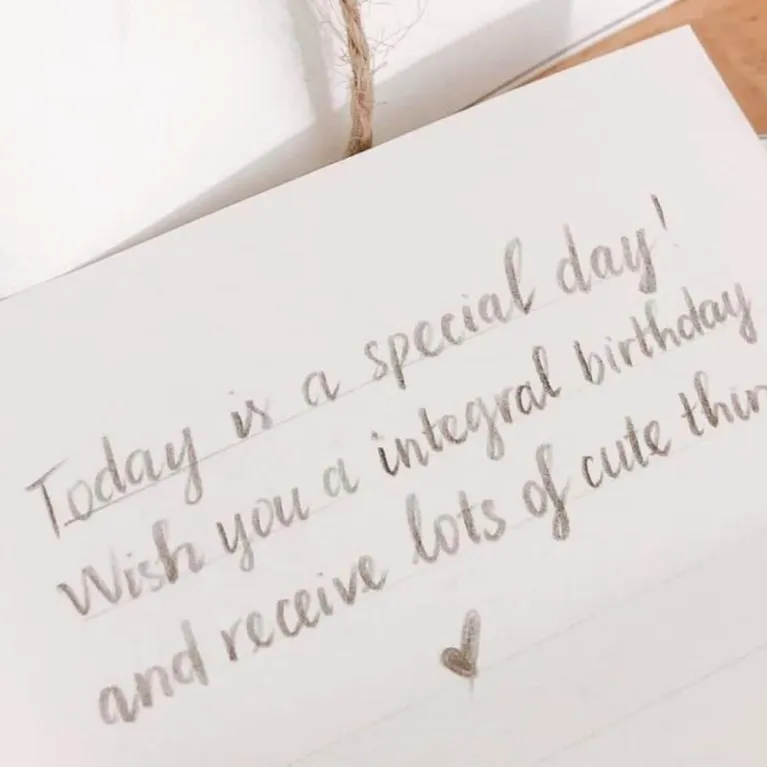 Today is a special day!
Wish you a integral birthday
and receive lots of cute thin